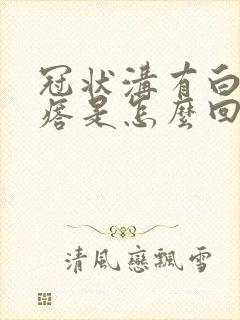 冠状溝有白
痞是怎麼回
清風戀飄雪